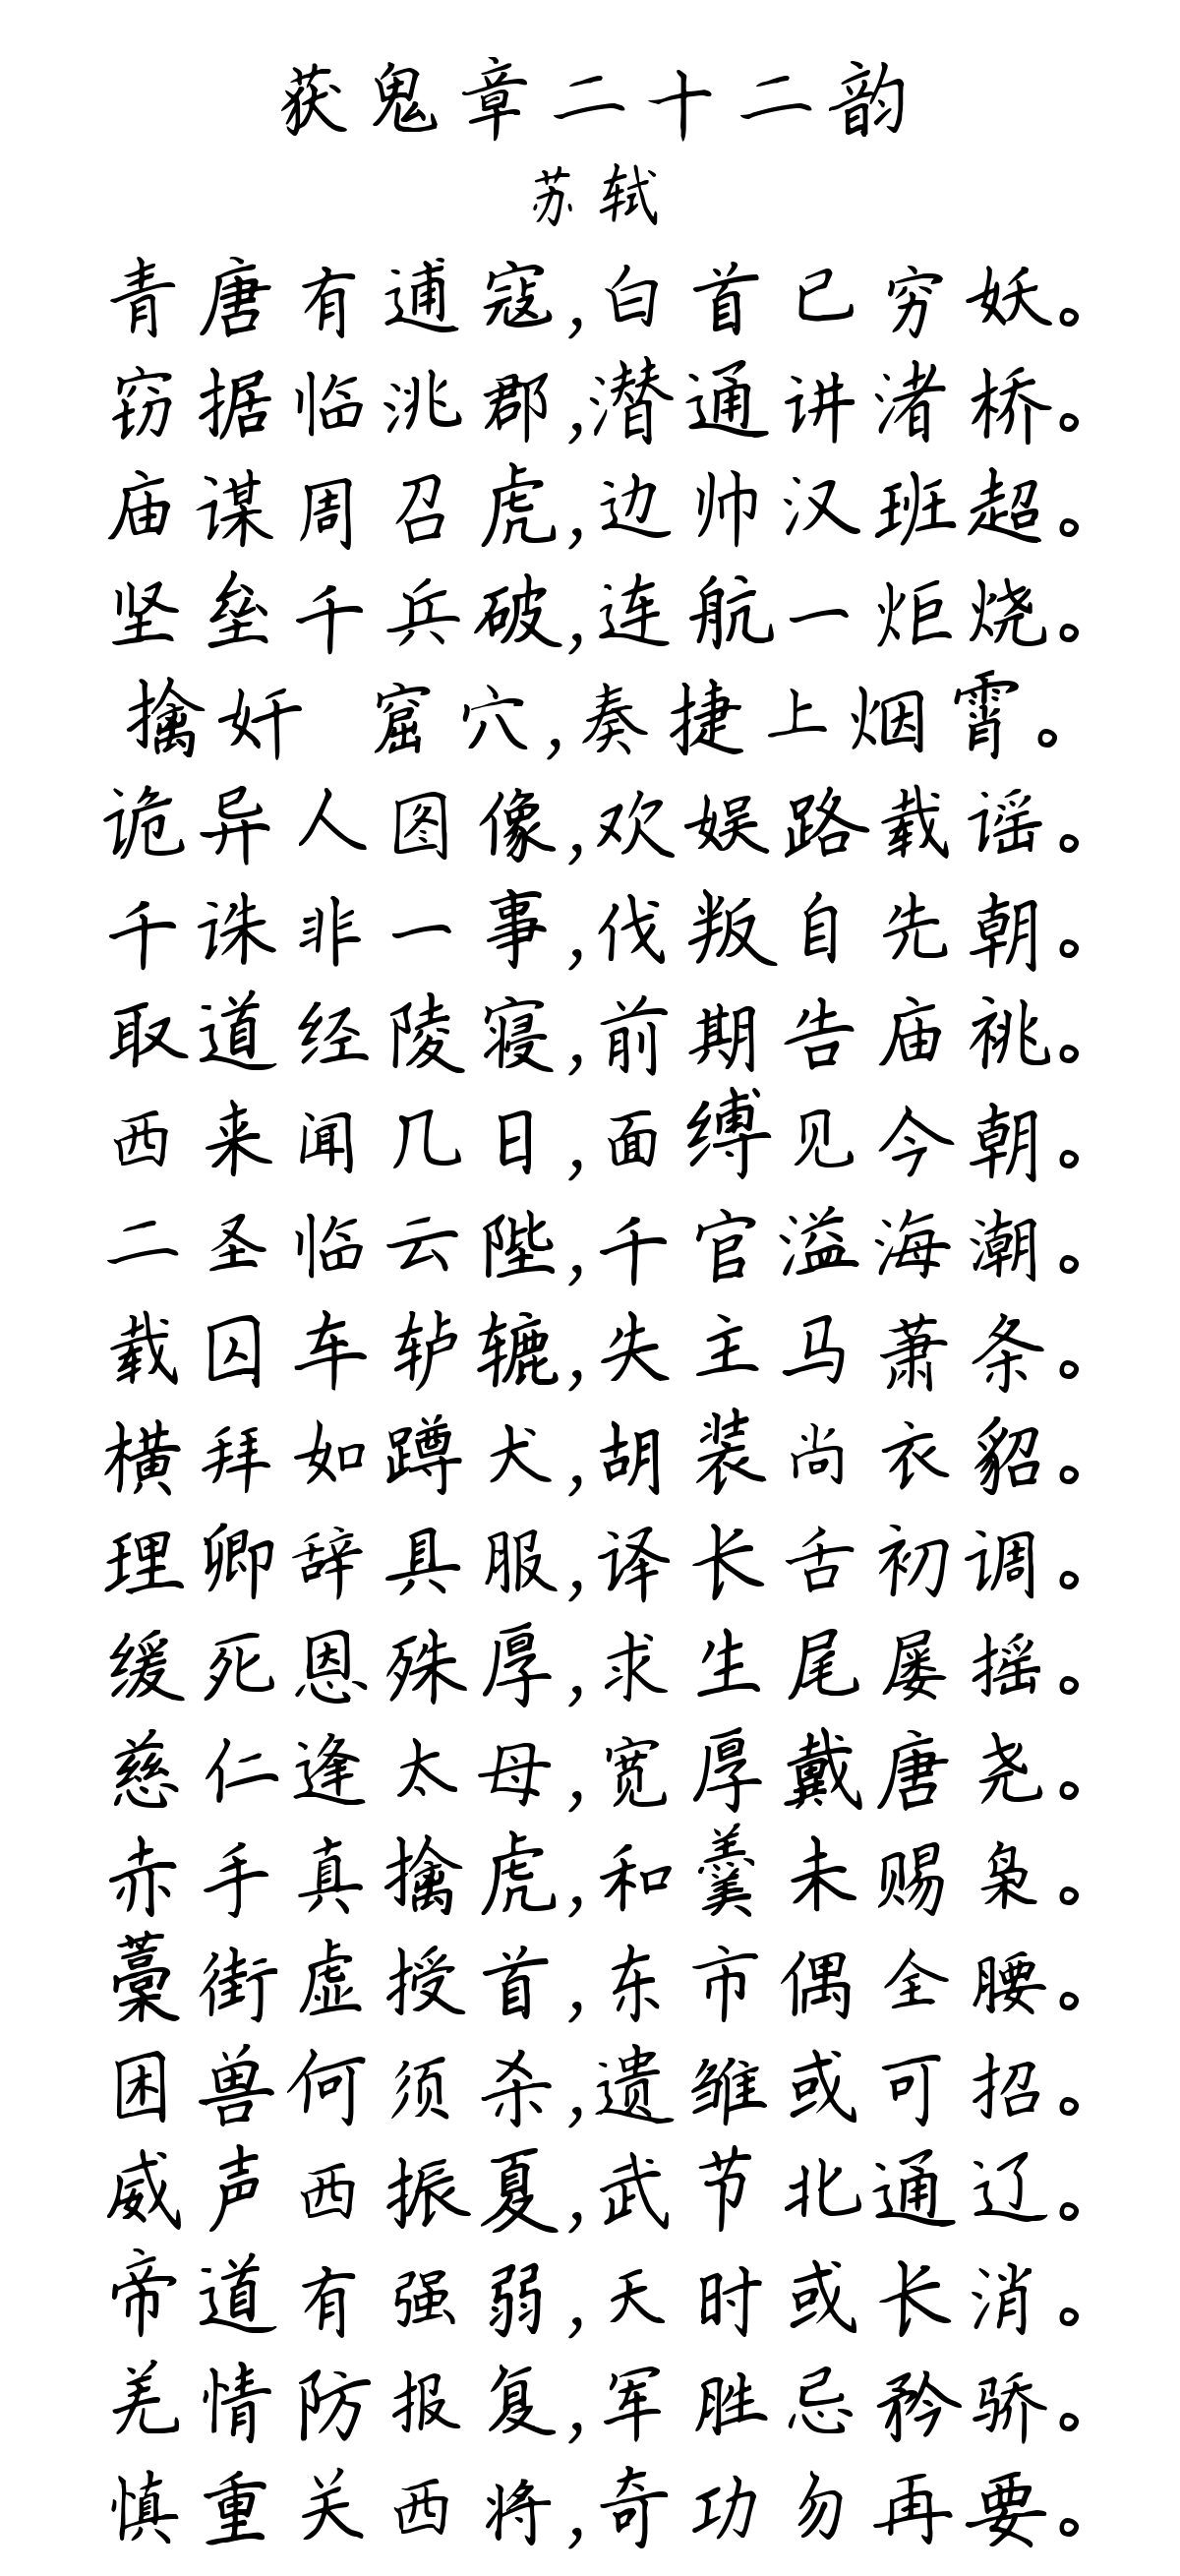 获鬼章二十二韵
苏轼
青唐有逋寇,白首已穷妖。
窃据临洮郡,潜通讲渚桥。
庙谋周召虎,边帅汉班超。
坚垒千兵破,连航一炬烧。
擒奸 窟穴,奏捷上烟霄。
诡异人图像,欢娱路载谣。
千诛非一事,伐叛自先朝。
取道经陵寝,前期告庙祧。
西来闻几日,面缚见今朝。
二圣临云陛,千官溢海潮。
载囚车轳辘,失主马萧条。
横拜如蹲犬,胡装尚衣貂。
理卿辞具服,译长舌初调。
缓死恩殊厚,求生尾屡摇。
慈仁逢太母,宽厚戴唐尧。
赤手真擒虎,和羹未赐枭。
藁街虚授首,东市偶全腰。
困兽何须杀,遗雏或可招。
威声西振夏,武节北通辽。
帝道有强弱,天时或长消。
羌情防报复,军胜忌矜骄。
慎重关西将,奇功勿再要。